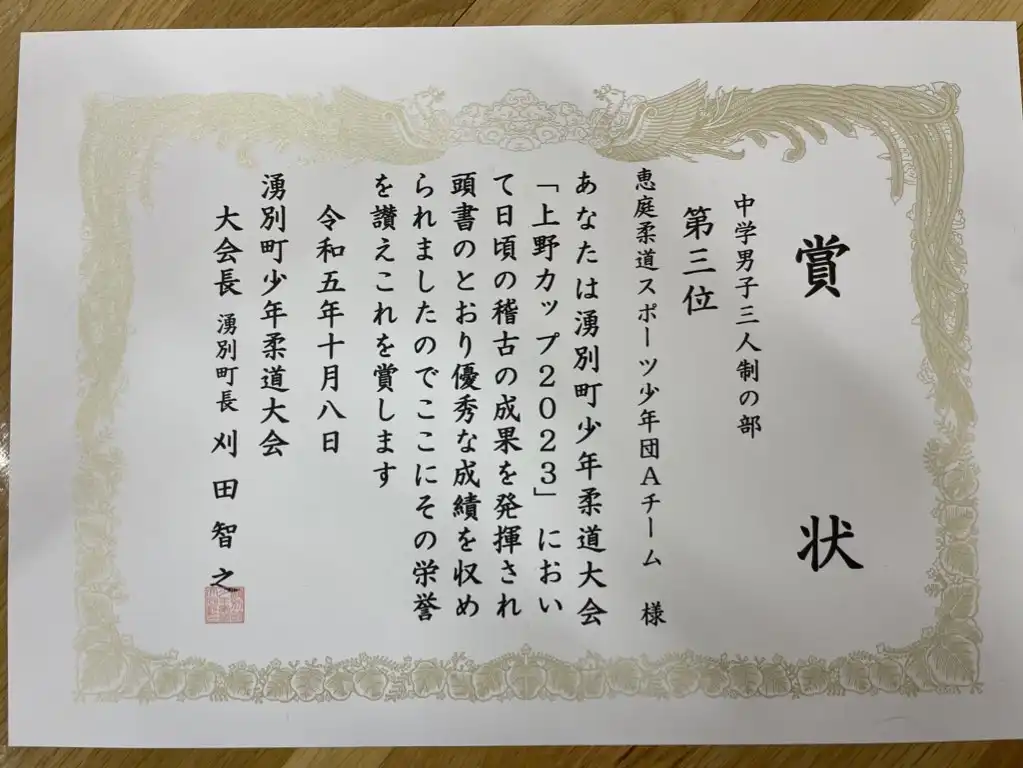 賞状
中学男子三人制の部
第三位
恵庭柔道スポーツ少年団Aチーム 様
あなたは湧別町少年柔道大会
「上野カップ2023」におい
て日頃の稽古の成果を発揮され
頭書のとおり優秀な成績を収め
られましたのでここにその栄誉
を讃えこれを賞します
令和五年十月八日
湧別町少年柔道大会
大会長 湧別町長 刈田智之